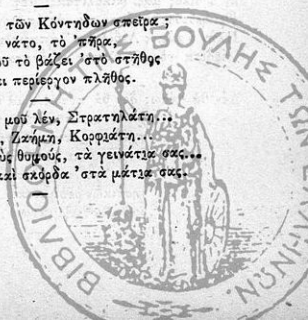 τῶν Κόντηδων σπεῖρα ;
νάτο, τὸ 'πῆρα,
τὸ βάζει 'στὸ στῆθος
περίεργον πλῆθος.
μοῦ λέν, Στρατηλάτη...
Ζαήμη, Κορφιάτη...
θυμούς, τὰ γεινάτια σας...
καὶ σκόρδα 'στὰ μάτια σας.
ΒΙΒΛΙΟ ΤΗΣ ΒΟΥΛΗΣ ΤΩΝ ΕΛΛΗΝΩΝ